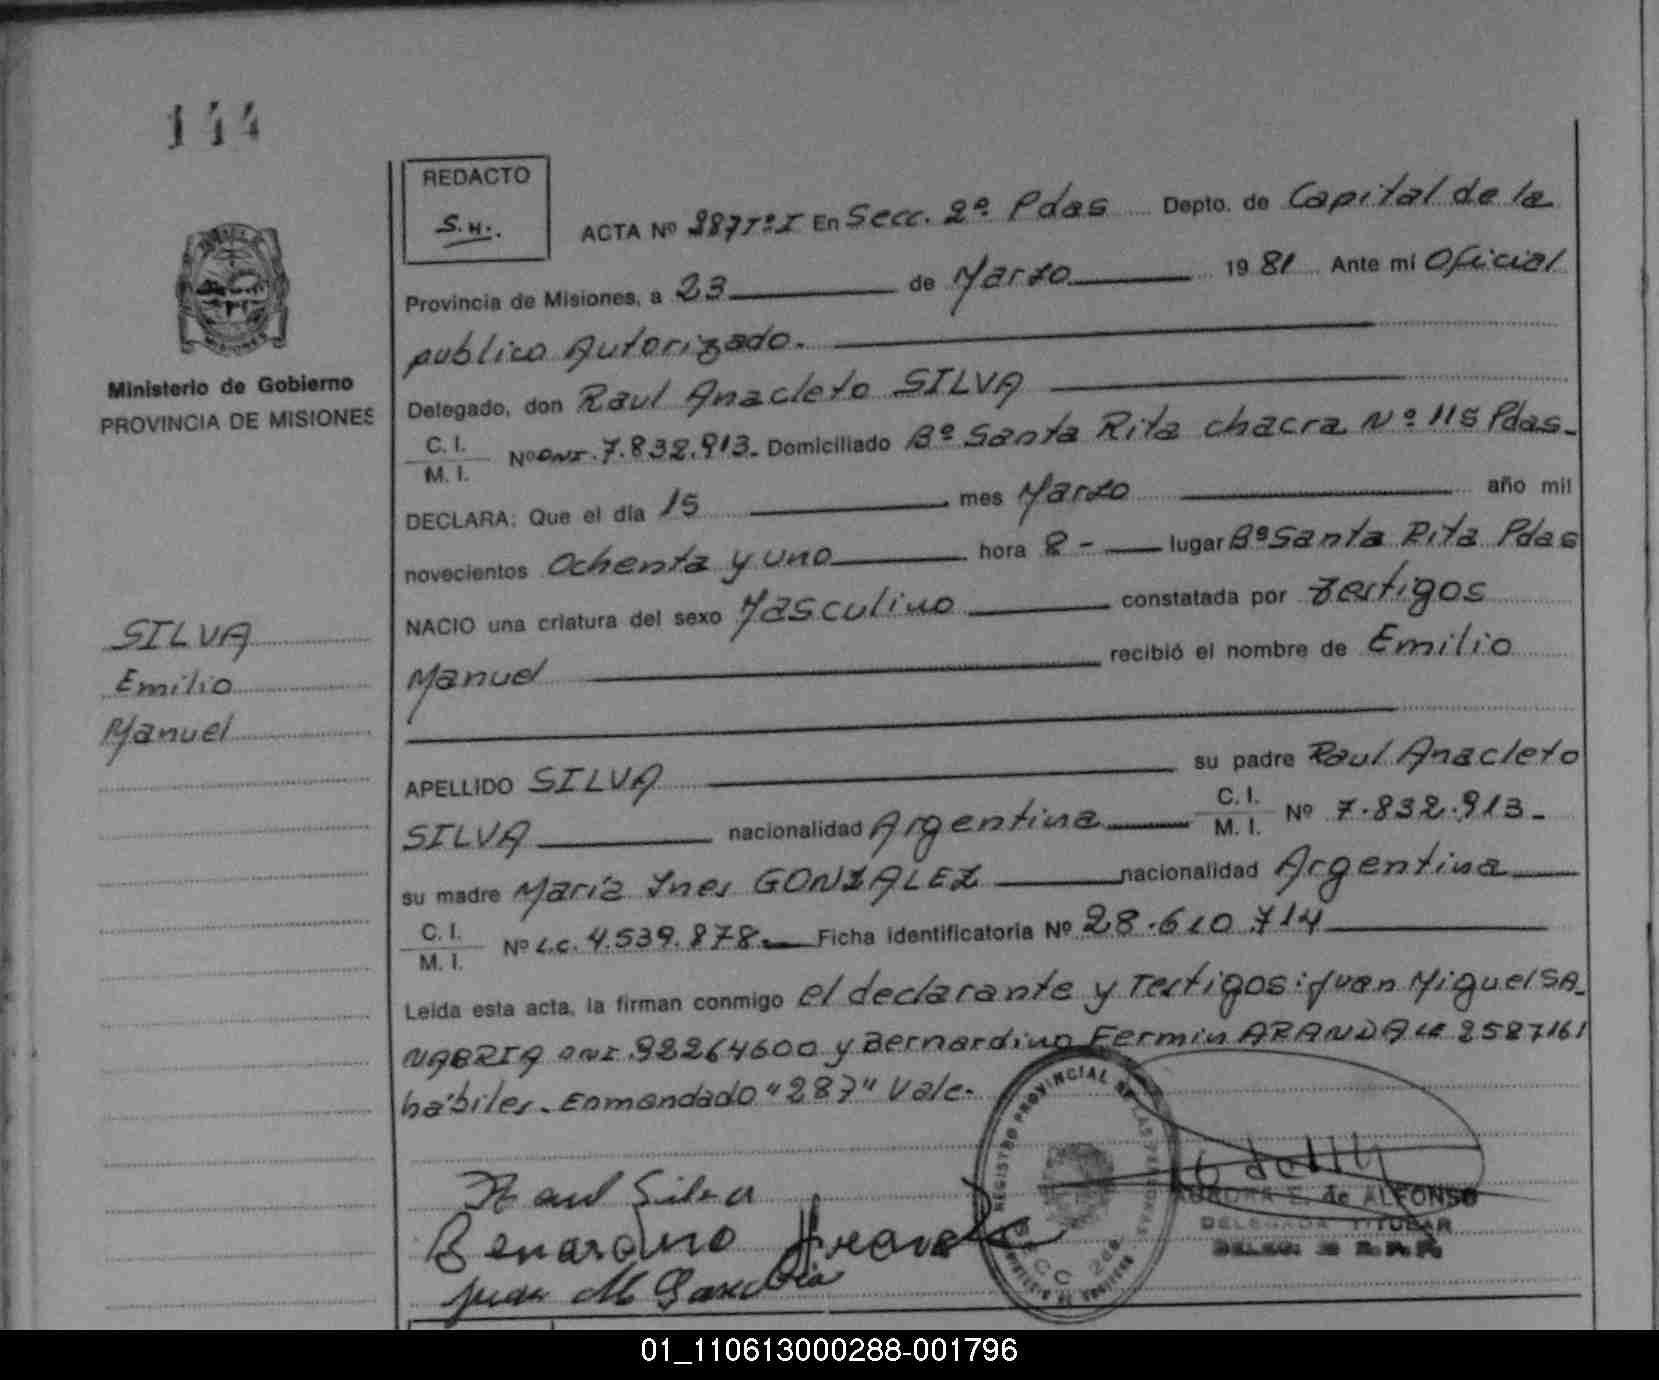 144
REDACTO
S.H.
ACTA Nº 287 Tº I En Secc. 2º Pdas Depto. de Capital de la
Provincia de Misiones, a 23 de Marzo 1981 Ante mi Oficial
publico Autorizado.
Ministerio de Gobierno
PROVINCIA DE MISIONES
Delegado, don Raul Anacleto SILVA
C. I.
M. I. Nº DNI. 7.832.913. Domiciliado Bº Santa Rita chacra Nº 115 Pdas.
DECLARA: Que el día 15 mes Marzo año mil
novecientos Ochenta y uno hora 8 - lugar Bº Santa Rita Pdas
NACIO una criatura del sexo Masculino constatada por Testigos
recibió el nombre de Emilio
Manuel
SILVA
Emilio
Manuel
APELLIDO SILVA su padre Raul Anacleto
SILVA nacionalidad Argentina C. I.
M. I. Nº 7.832.913.
su madre María Ines GONZALEZ nacionalidad Argentina
C. I.
M. I. Nº L.C. 4.539.878. Ficha identificatoria Nº 28.610.714
Leída esta acta, la firman conmigo el declarante y Testigos: Juan Miguel SA
NABRIA DNI. 92264600 y Bernardino Fermin ARANDA LE 2587161
hábiles. Enmendado "287" Vale.
Raul Silva
Benardino
Juan M
REGISTRO PROVINCIAL DE LAS PERSONAS
SECC 2da
AURORA E. de ALFONSO
DELEGADA TITULAR
01_110613000288-001796